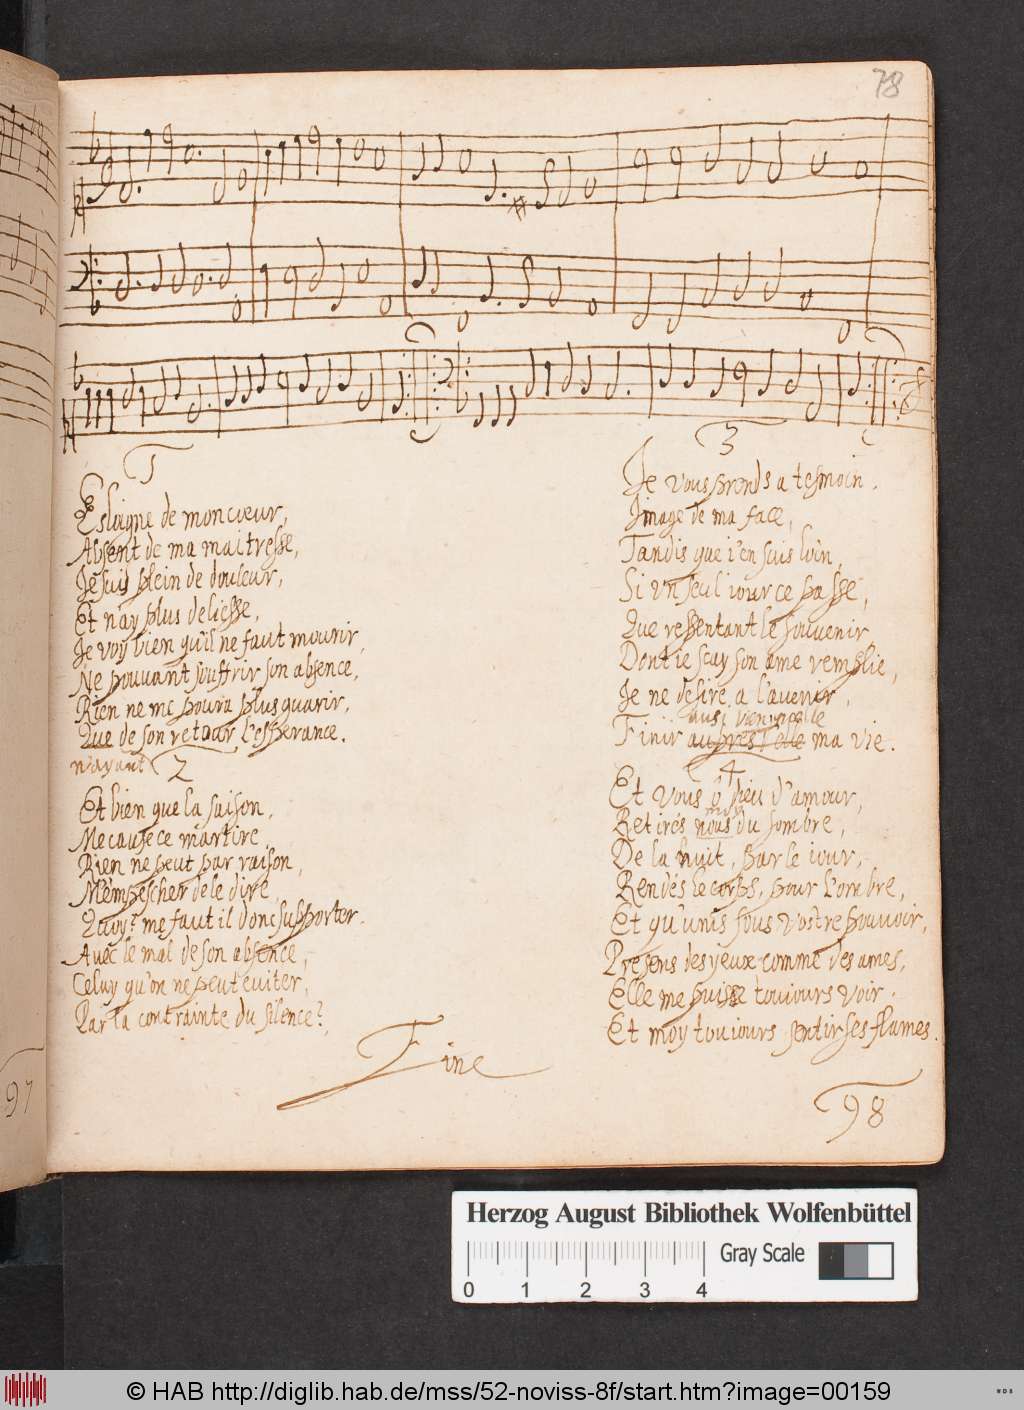 78
1
Esloigne de mon cœur,
Absent de ma maitresse,
Je suis plein de douleur,
Et n'ay plus de liesse,
Je voy bien qu'il ne faut mourir,
Ne pouvant souffrir son absence,
Rien ne me poura plus guarir,
Que de son retour l'esperance.
n'ayant
2
Et bien que la saison,
Me cause ce martire
Rien ne peut par raison,
M'empescher de le dire,
Quoy? me faut il donc supporter.
Avec le mal de son absence,
Celuy qu'on ne peut eviter,
Par la contrainte du silence?
3
Je vous prends a tesmoin,
Image de ma face,
Tandis que i'en suis loin,
Si un seul iour ce passe,
Que ressentant le souvenir
Dont ie scay son ame remplie,
Je ne desire a l'avenir,
aussi bien
Finir aupres d'elle ma vie.
4
Et vous ô Dieu d'amour,
moy
Retirés nous du sombre,
De la nuit, par le iour,
Rendés le corps, pour l'ombre,
Et qu'unis sous vostre pouvoir,
Presens des yeux comme des ames,
Elle me puisse tousiours voir.
Et moy tousiours sentir ses flames.
Fine
97
98
Herzog August Bibliothek Wolfenbüttel
Gray Scale
0 1 2 3 4
© HAB http://diglib.hab.de/mss/52-noviss-8f/start.htm?image=00159